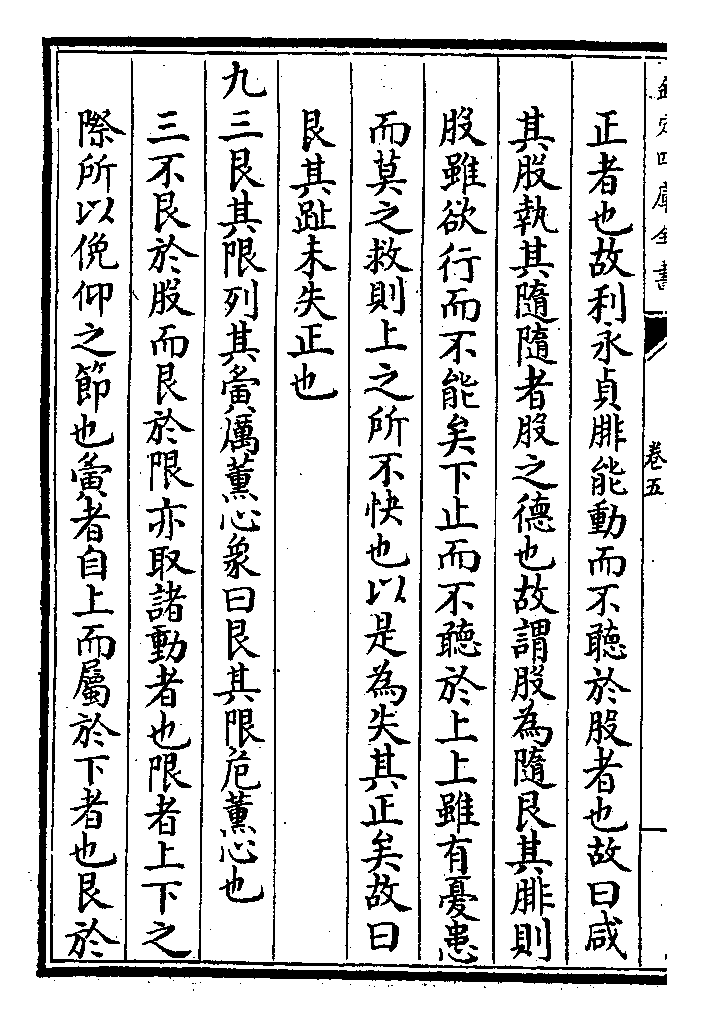 欽定四庫全書
卷五
正者也故利永貞腓能動而不聽於股者也故曰咸
其股執其隨隨者股之德也故謂股為隨艮其腓則
股雖欲行而不能矣下止而不聽於上上雖有憂患
而莫之救則上之所不快也以是為失其正矣故曰
艮其趾未失正也
九三艮其限列其夤厲薰心象曰艮其限危薰心也
三不艮於股而艮於限亦取諸動者也限者上下之
際所以俛仰之節也夤者自上而屬於下者也艮於